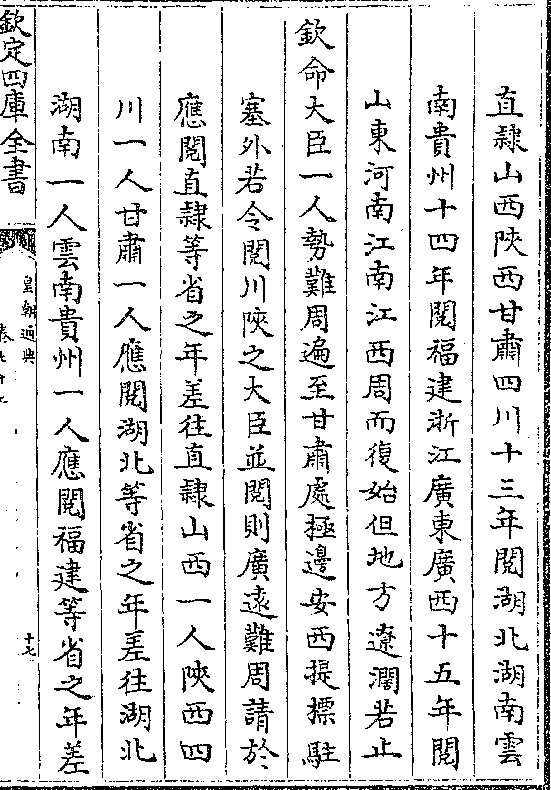 直隸山西陝西甘肅四川十三年閱湖北湖南雲
南貴州十四年閱福建浙江廣東廣西十五年閱
山東河南江南江西周而復始但地方遼濶若止
欽命大臣一人勢難周遍至甘肅處極邊安西提標駐
塞外若令閱川陝之大臣並閱則廣遠難周請於
應閱直隸等省之年差往直隸山西一人陝西四
川一人甘肅一人應閱湖北等省之年差往湖北
湖南一人雲南貴州一人應閱福建等省之年差
欽定四庫全書
皇朝通典
十七